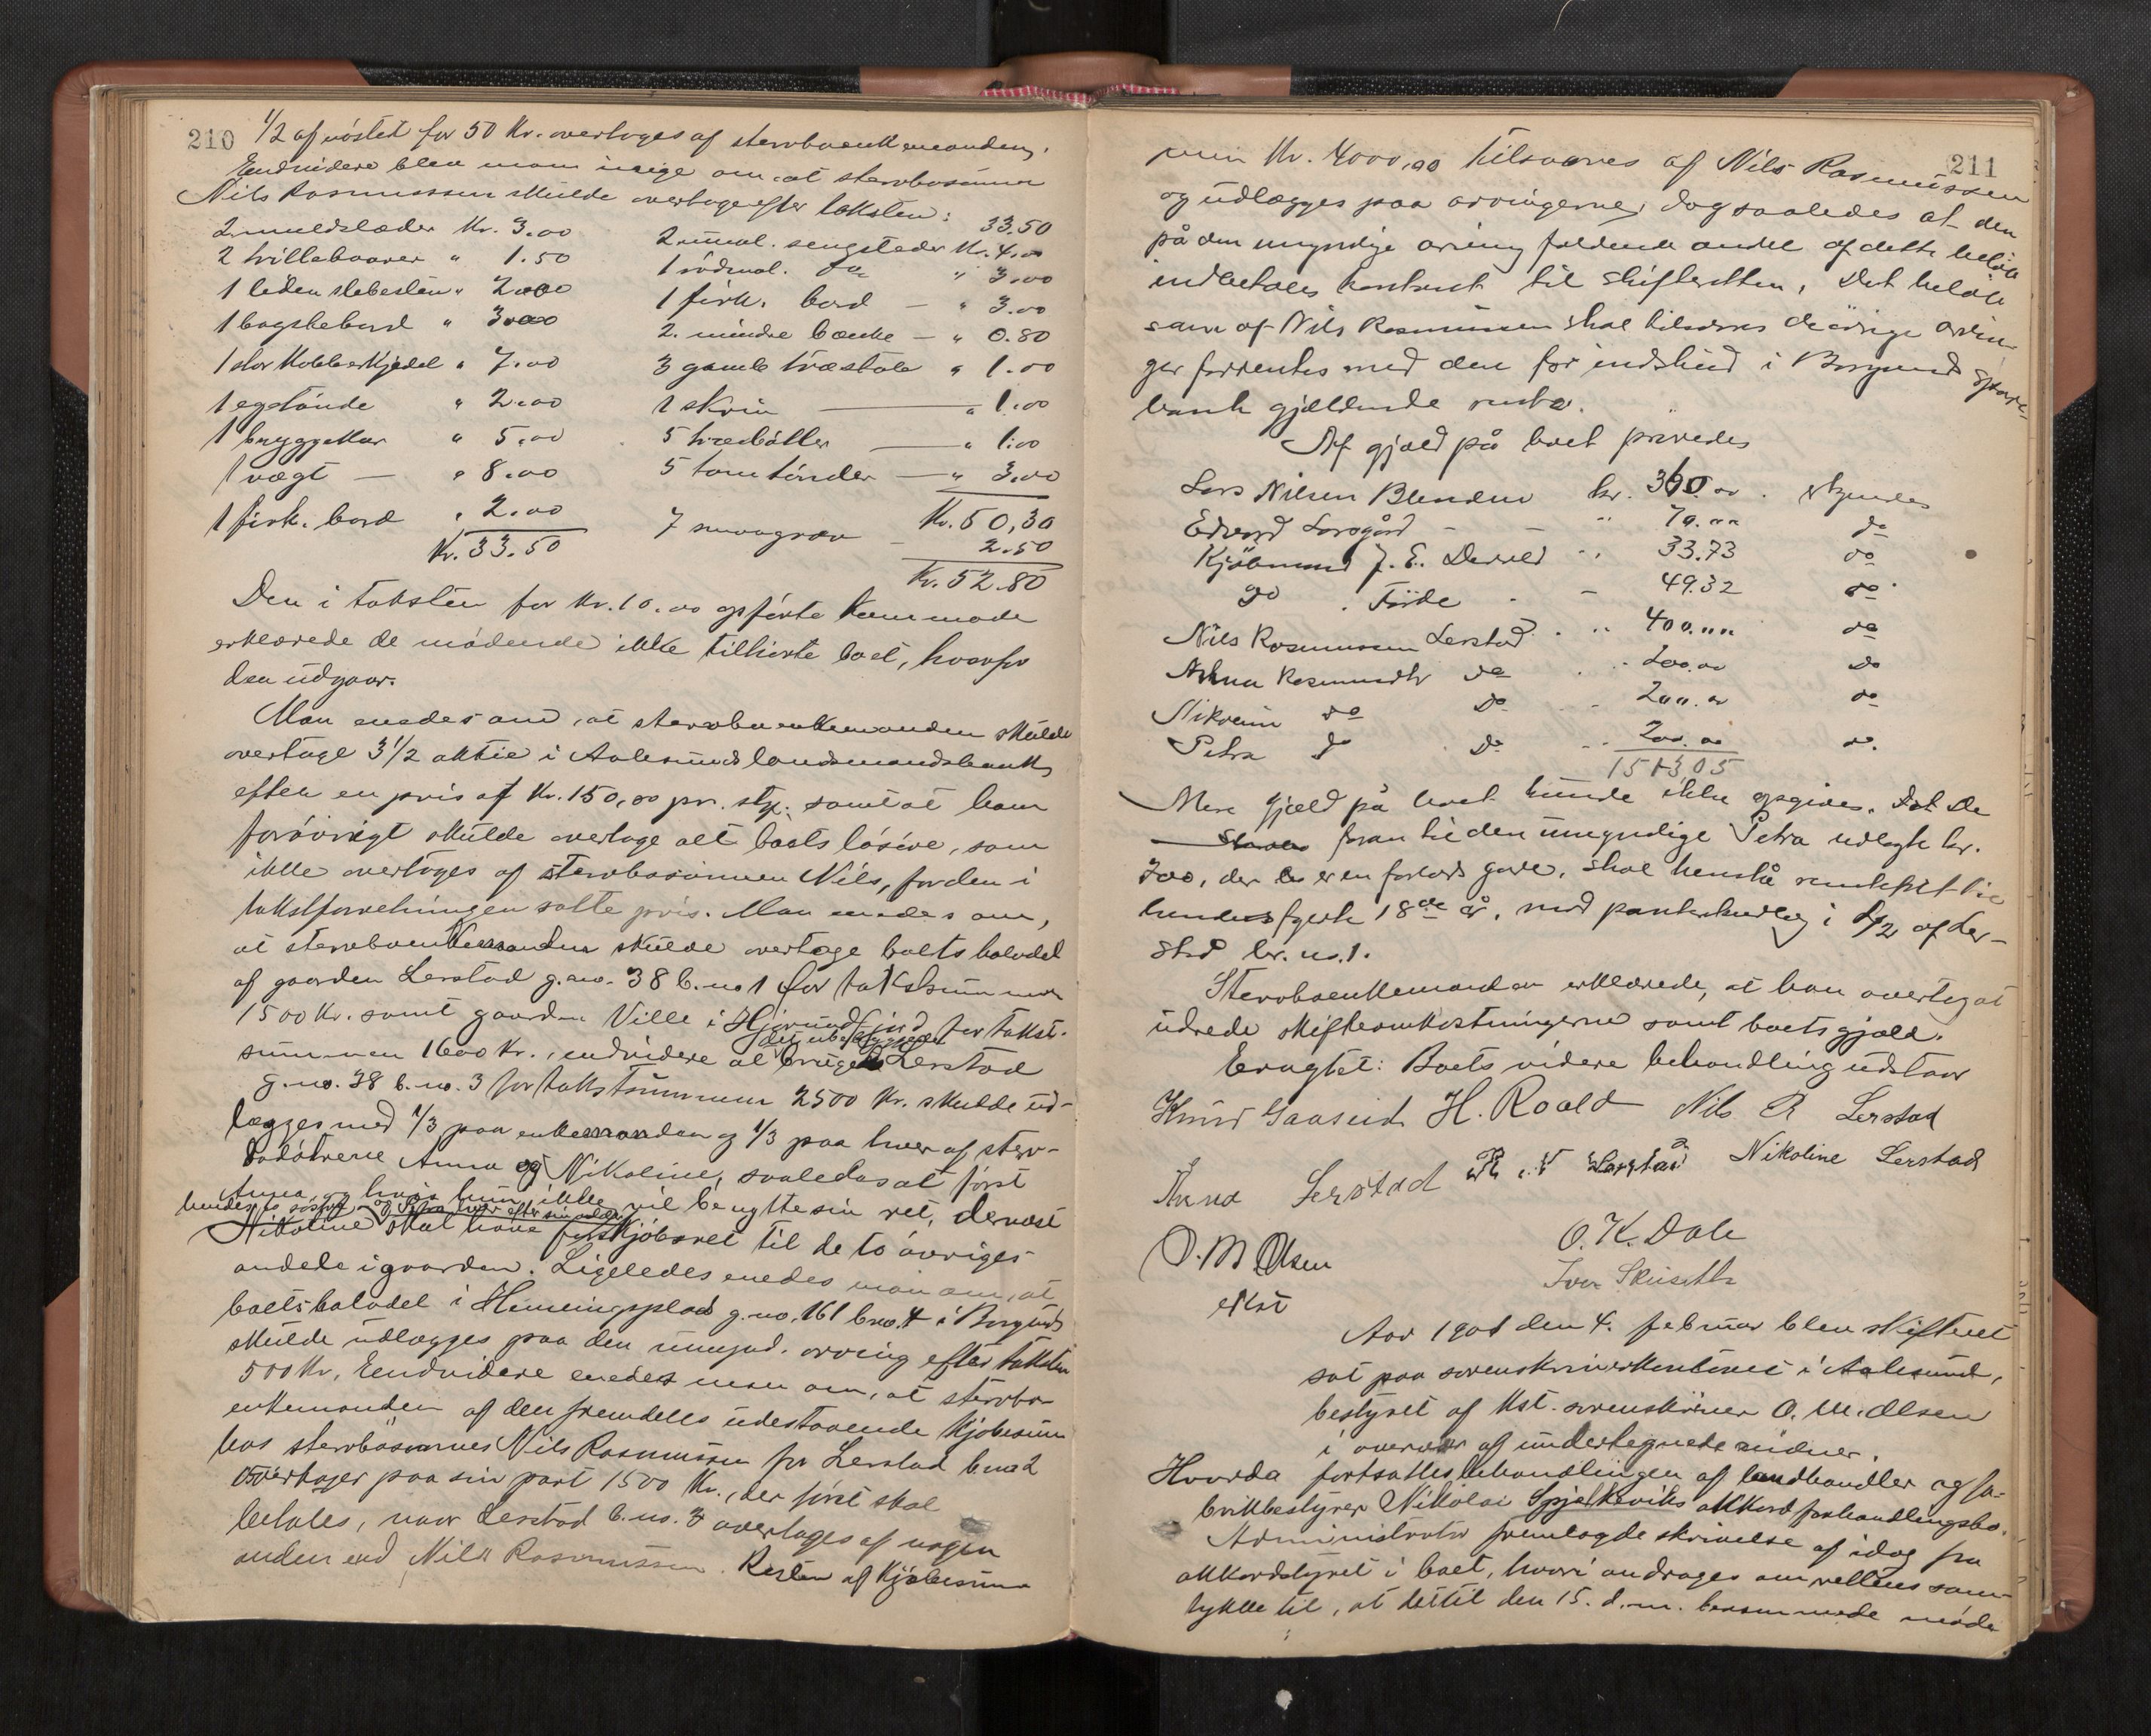 210
1/2 af nöstet for 50 Kr. overtoges af sterboenkemanden.
Endvidere blev man enige om at sterbosönnen
Nils Rasmussen skulde overtage efter taksten:
33.50
2 muldslæder Kr. 3.00
2 umal. sengsteder Kr. 4.00
2 trillebaarer " 1.50
1 rödmal. do " 3.00
1 liden slebesten " 2.00
1 firk. bord — " 3.00
1 bagstebord " 3.00
2. mindre bænke — " 0.80
1 stor Kobberkjedel " 7.00
3 gamle træstole " 1.00
1 egetönde " 2.00
1 skrin — " 1.00
1 bryggekar " 5.00
5 træbötter — " 1.00
1 vægt — " 8.00
5 tomtönder — " 3.00
1 firk. bord " 2.00
Kr. 50,30
Kr. 33.50
7 — 2.50
Kr. 52.80
Den i taksten for Kr. 10.00 opförte Kommode
erklærede de mödende ikke tilhörte boet, hvorfor
den udgaar.
Man enedes om, at sterboenkemanden skulde
overtage 3 1/2 aktie i Aalesunds landmandsbank
efter en pris af Kr. 150,00 pr. stk. samt at han
forövrigt skulde overtage alt boets lösöre, som
ikke overtoges af sterbosönnen Nils, for den i
takstforretningen satte pris. Man enedes om,
at sterboenkemanden skulde overtage boets halvdel
af gaarden Lerstad g.no. 38 b.no 1 for takstsummen
1500 Kr. samt gaarden Ville i Hjörundfjord for takst-
det ubebyggede
summen 1600 Kr., endvidere at brug Lerstad
g.no. 38 b.no. 3 for takstsummen 2500 Kr. skulde ud-
lægges med 1/3 paa enkemanden og 1/3 paa hver af ster-
bodötrene Anna og Nikoline, saaledes at först
Anna, og hvis hun ikke vil benytte sin ret, dernæst
hendes to söstre, og Petra hver efter sin alder
Nikoline skal have forkjöbsret til de to övriges
andele i gaarden. Ligeledes enedes man om, at
boets halvdel i Hemingsplads g.no. 161 b.no. 4 i Borgund
skulde udlægges paa den umynd. arving efter taksten
500 Kr. Endvidere enedes man om, at sterbo-
enkemanden af den fremdeles udestaaende Kjöbesum
hos sterbosönnes Nils Rasmussen for Lerstad b.no 2
overtager paa sin part 1500 Kr., der först skal
betales, naar Lerstad b.no. 3 overtages af nogen
anden end Nils Rasmussen. Resten af Kjöbesum
211
men Kr. 4000,00 tilsvares af Nils Rasmussen
og udlægges paa arvingerne, dog saaledes at den
på den umyndige arving faldende andel af dette belöb
indbetales kontant til skifteretten. Det belöb
som af Nils Rasmussen skal tilsvares de övrige arvin-
ger forrentes med den for indskud i Borgund spare-
bank gjældende rente.
Af gjæld på boet prövedes
Lars Nilsen Blindem kr. 360.00. erkjendes
Edvard Larsgård — " 70.00 do
Kjöbmand J. E. Devold " 33.73 do
do Friide — 49.32 do
Nils Rasmussen Lerstad " 400.00 do
Anna Rasmusdtr do 200.00 do
Nikoline do do 200.00 do
Petra do do 200.00 do.
1513 05
Mere gjæld på boet kunde ikke opgives. Det de
foran til den umyndige Petra udlagte kr.
200, der er en forlods gave, skal henstå rentefrit til
hendes fyldte 18de år, mod panteskudlag i 1/2 af Ler-
stad br. no. 1.
Sterboenkemanden erklærede, at han overtog at
udrede skifteomkostningerne samt boets gjæld.
Eragtet: Boets videre behandling udstaar
Knud Gaaseid H. Roald Nils R Lerstad
Anna Lerstad R. N Lerstad Nikoline Lerstad
O. M Olsen
O. K. Dale
kst
Iver Skuseth
Aar 1901 den 4. februar blev skifteret
sat paa sorenskriverkontoret i Aalesund,
bestyret af kst. sorenskriver O. M. Olsen
i overvær af undertegnede vidner.
Hvorda fortsattes behandlingen af landhandler og fa-
brikbestyrer Nikolai Spjelkaviks akkordforhandlingsbo.
Administrator fremlagde skrivelse af idag fra
akkordstyret i boet, hvori andrages om rettens sam-
tykke til, at det til den 15. d.m. berammede möde